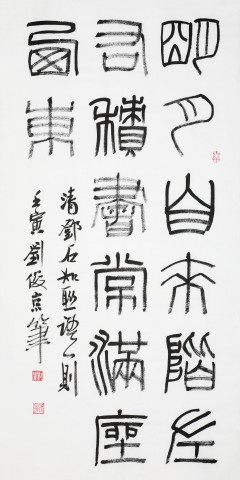 明月自來階左
右積書常滿座
西東
清鄧石如聯語一則
壬寅劉俊京筆